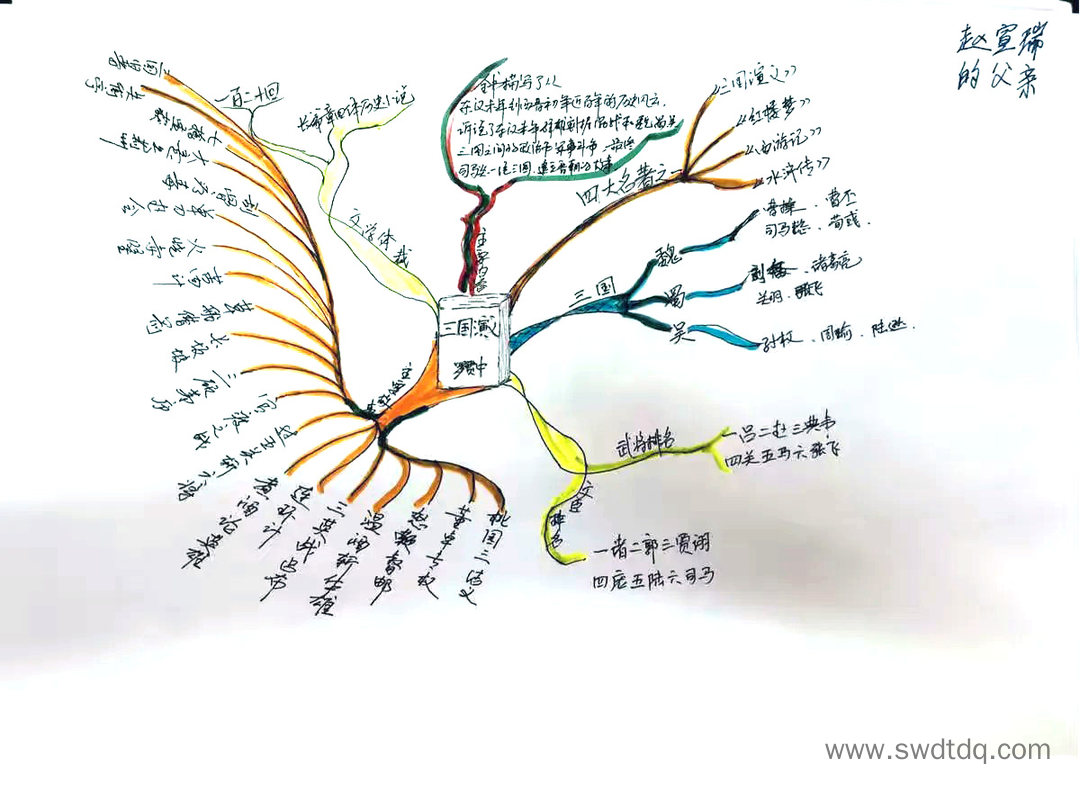 赵宣瑞
的父亲
三国演义
罗贯中
主要内容
全书描写了从
东汉末年到西晋初年近百年的历史风云,
诉说了东汉末年群雄割据混战和魏蜀吴
三国之间的政治和军事斗争,最终
司马炎一统三国,建立晋朝的故事
四大名著之一
三国演义》
《红楼梦》
《西游记》
《水浒传》
三国
魏
曹操、曹丕
司马懿、荀彧、
蜀
刘备、诸葛亮
关羽、张飞
吴
孙权、周瑜、陆逊
武将排名
一吕二赵三典韦
四关五马六张飞
文臣排名
一诸二郭三贾诩
四庞五陆六司马
文学体裁
长篇章回体历史小说
一百二十回
桃园三结义
董卓专权
怒鞭督邮
温酒斩华雄
三英战吕布
连环计
煮酒论英雄
过五关斩六将
官渡之战
三顾茅庐
长坂坡
草船借箭
苦肉计
火烧赤壁
单刀赴会
刮骨疗毒
大意失荆州
七擒孟获
失街亭
三国归晋